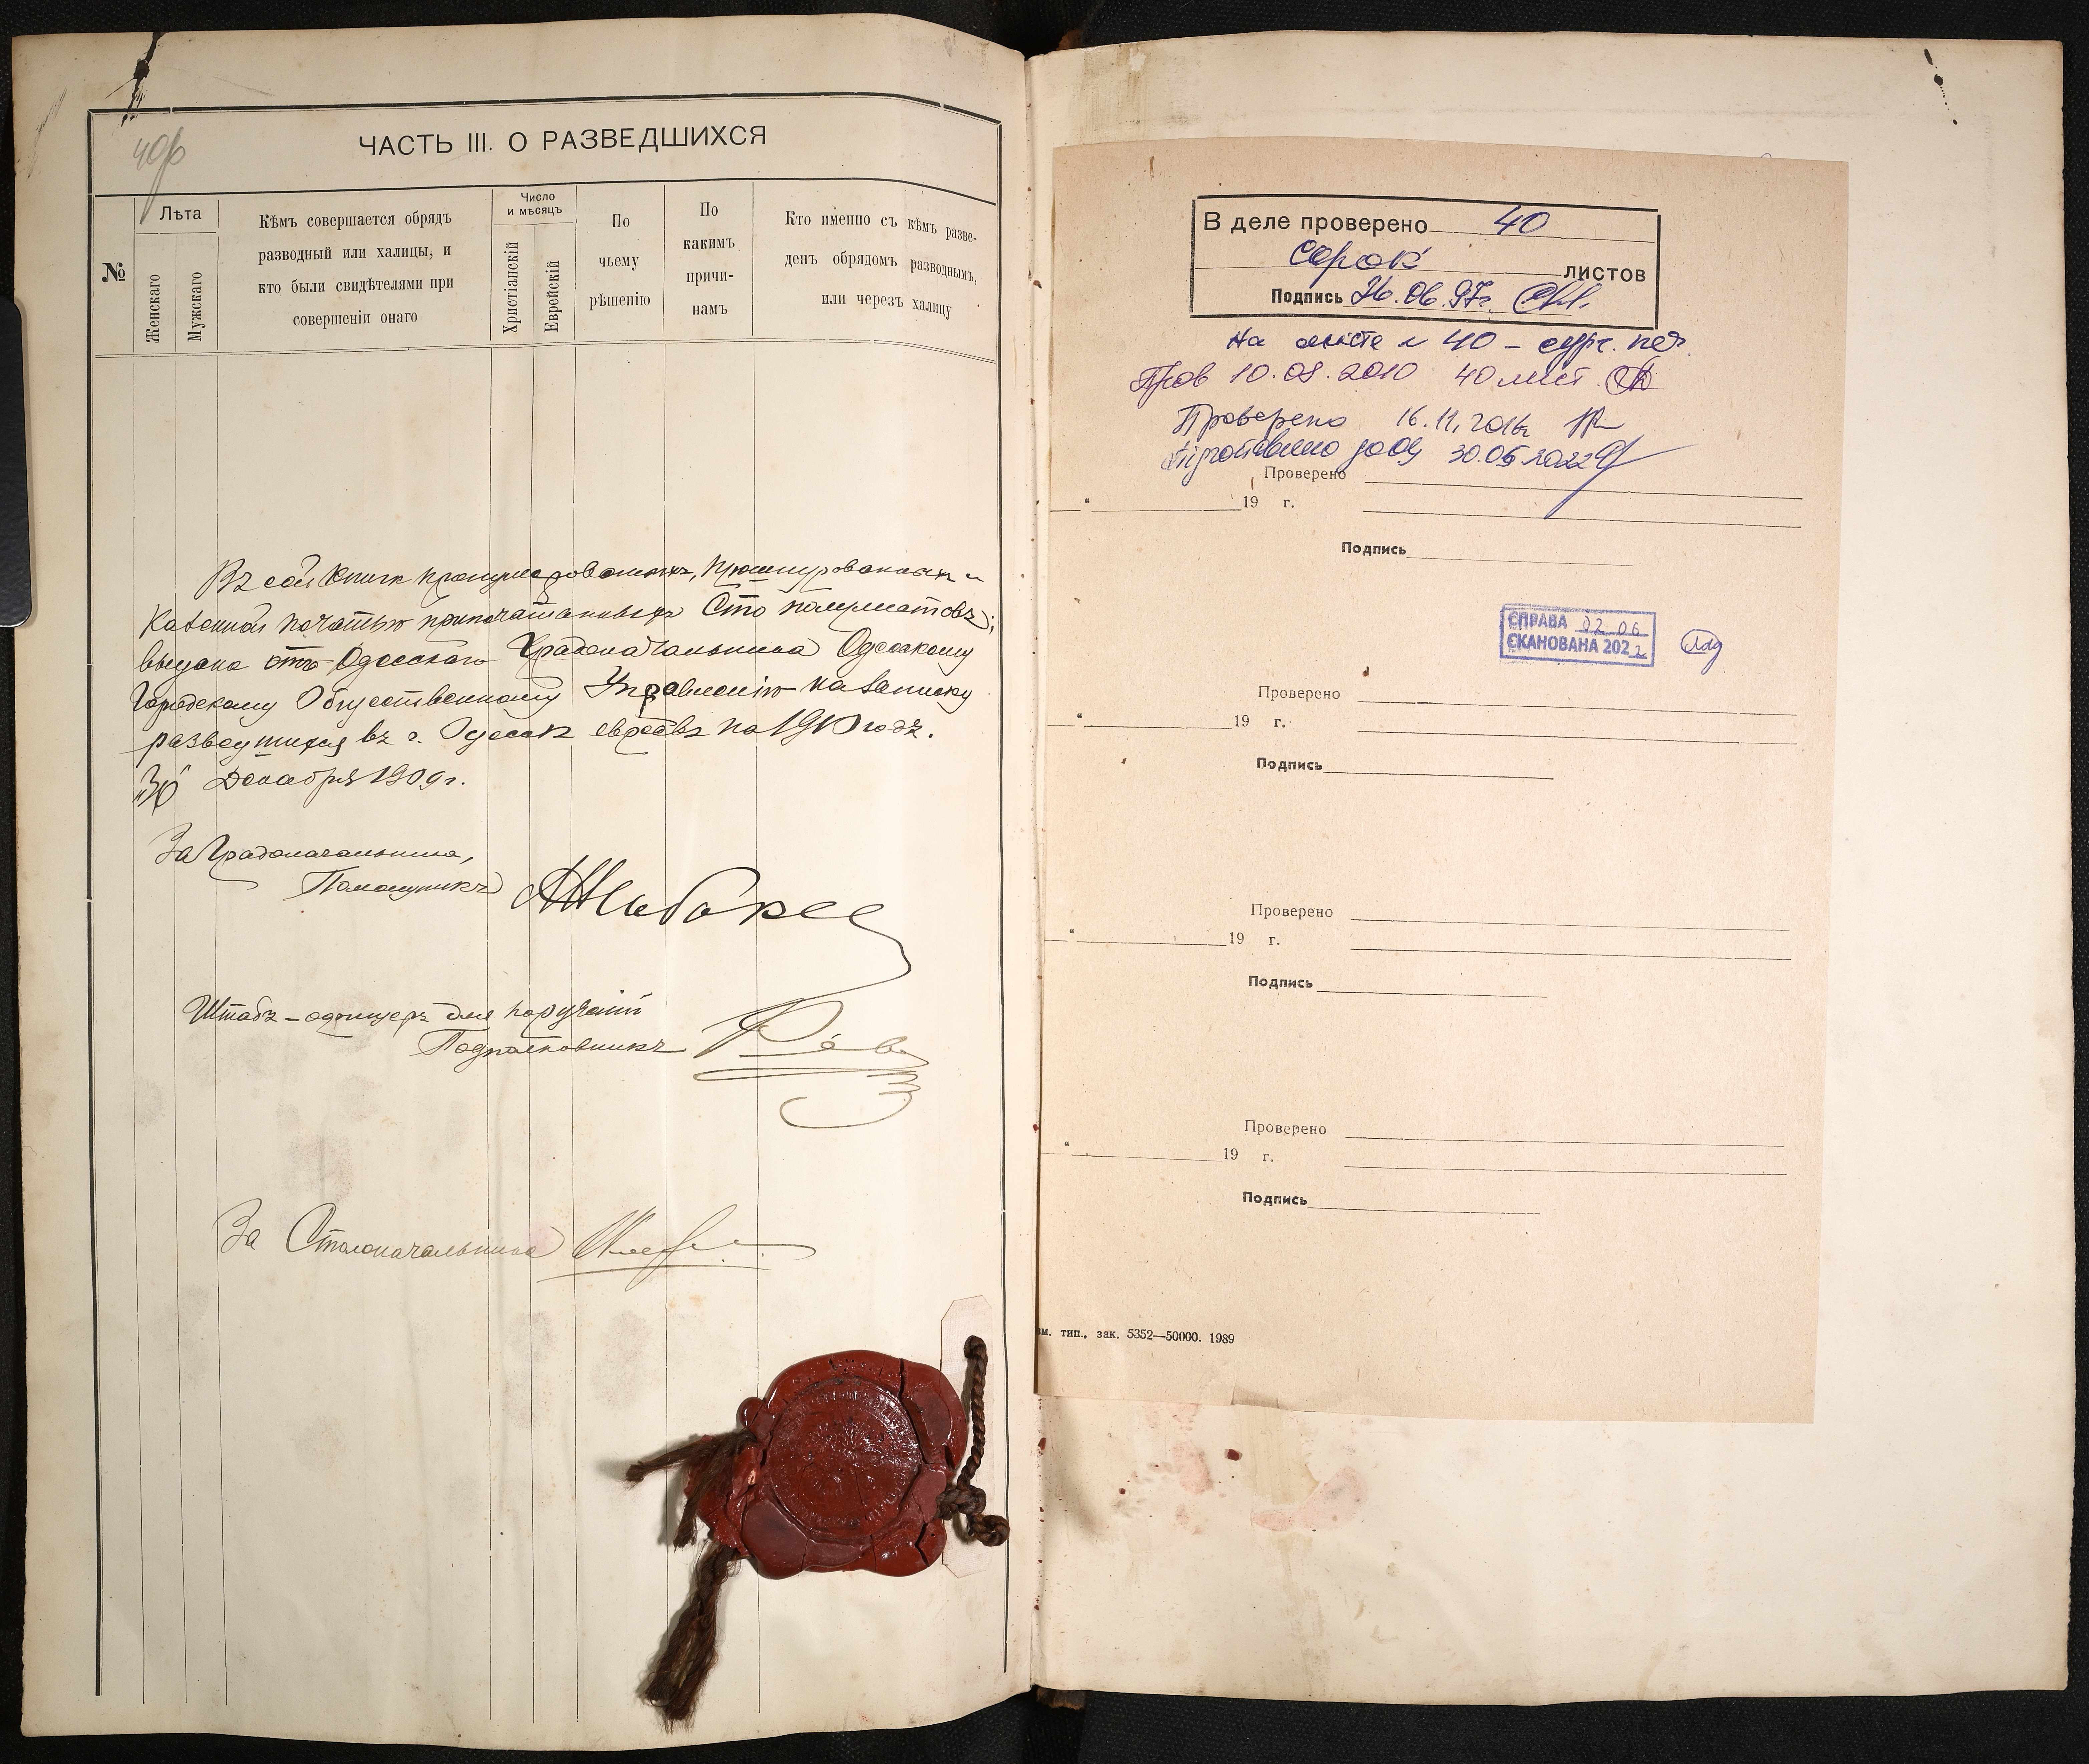 40об
ЧАСТЬ III. О РАЗВЕДШИХСЯ
№
Лѣта
Женскаго
Мужскаго
Кѣмъ совершается обрядъ
разводный или халицы, и
кто были свидѣтелями при
совершеніи онаго
Число
и мѣсяцъ
Христіанскій
Еврейскій
По
чьему
рѣшенію
По
какимъ
причи-
намъ
Кто именно съ кѣмъ разве-
денъ обрядомъ разводнымъ,
или черезъ халицу
Въ сей книгѣ пронумерованныхъ, прошнурованныхъ и
казенной печатью припечатанныхъ Сто полулистовъ;
выдана отъ Одесскаго Градоначальника Одесскому
Городскому Общественному Управленію на записку
разведшихся въ г. Одессѣ евреевъ на 1910 годъ.
"30" Декабря 1909 г.
За Градоначальника,
Помощникъ
Штабъ-офицеръ для порученій
Подполковникъ
За Столоначальника
В деле проверено 40
Сорок
листов
Подпись 26.06.97г.
На листе № 40 – сург. печ.
Пров 10.08.2010 40 лист.
Проверено 16.11.2016г
Підготовлено до оц 30.05 2022
Проверено
" 19 г.
Подпись
СПРАВА 02 06
СКАНОВАНА 2022
Проверено
" 19 г.
Подпись
Проверено
" 19 г.
Подпись
Проверено
" 19 г.
Подпись
тип., зак. 5352—50000. 1989